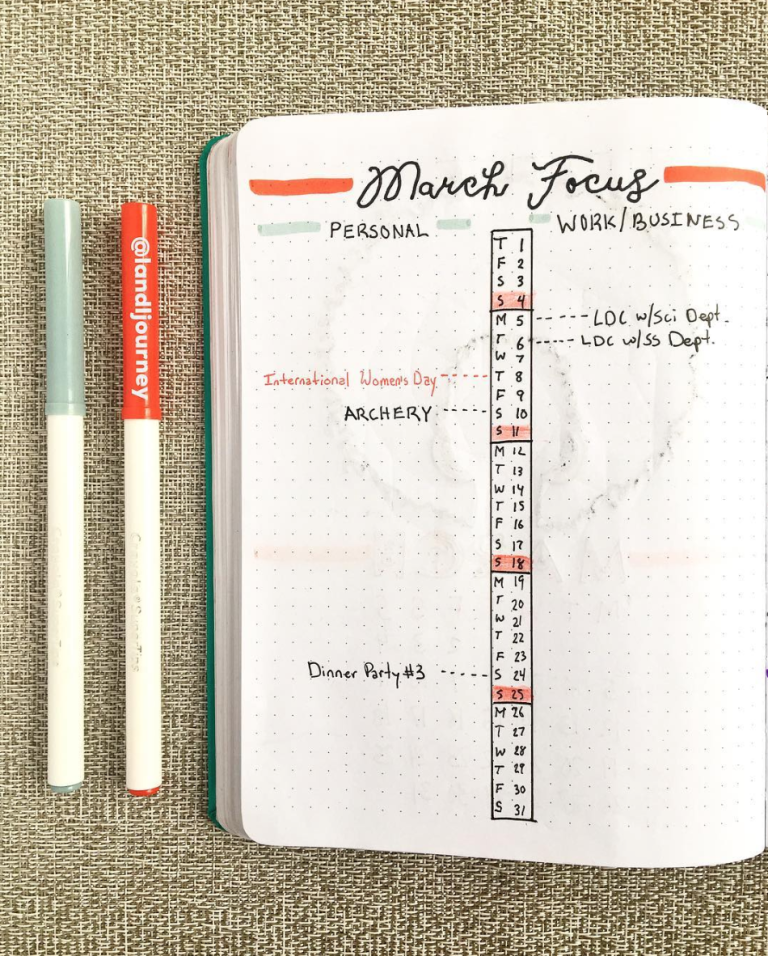 March Focus
PERSONAL
WORK/BUSINESS
T 1
F 2
S 3
S 4
M 5 LDC w/Sci Dept.
T 6 LDC w/SS Dept.
W 7
International Women's Day T 8
F 9
ARCHERY S 10
S 11
M 12
T 13
W 14
T 15
F 16
S 17
S 18
M 19
T 20
W 21
T 22
F 23
Dinner Party #3 S 24
S 25
M 26
T 27
W 28
T 29
F 30
S 31
@landljourney